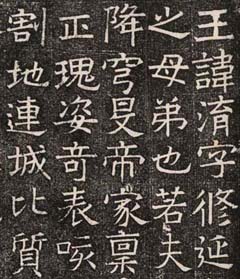 王諱淯字修延
之母弟也若夫
降穹旻帝家稟
正瑰姿奇表咳
割地連城比質